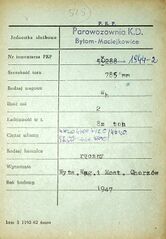 P. K. P.
Jednostka służbowa
Parowozownia K.D.
Bytom-Maciejkowice
Nr inwentarza PKP
1944-2
Szerokość toru
785 mm
Rodzaj wagonu
Ilość osi
2
Ładowność w t.
8m ton
Ciężar własny
Rodzaj hamulca
ręczny
Wytwórnia
Wytw. Wag. i Most. Chorzów
Rok budowy
1947